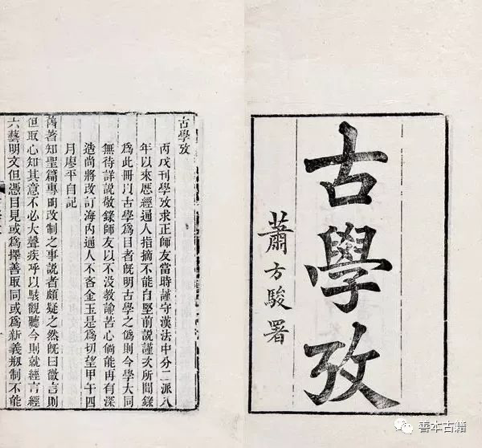 古學攷
蕭方駿署
古學攷
丙戌刊學攷求正師友當時謹守漢法中分二派八
年以來歷經通人指摘不能自堅前說謹次所聞錄
爲此冊以古學爲目者旣明古學之僞則今學大同
無待詳說敬錄師友以不沒教諭苦心倘能再有深
造尚將改訂海內通人不吝金玉是爲切望甲午四
月廖平自記
舊著知聖篇專明改制之事說者頗疑之然旣曰微言則
但取心知其意不必大聲疾呼以駭觀聽今則就經言經
六藝明文但憑目見或爲擇善取同或爲新義刱制不能
善本古籍